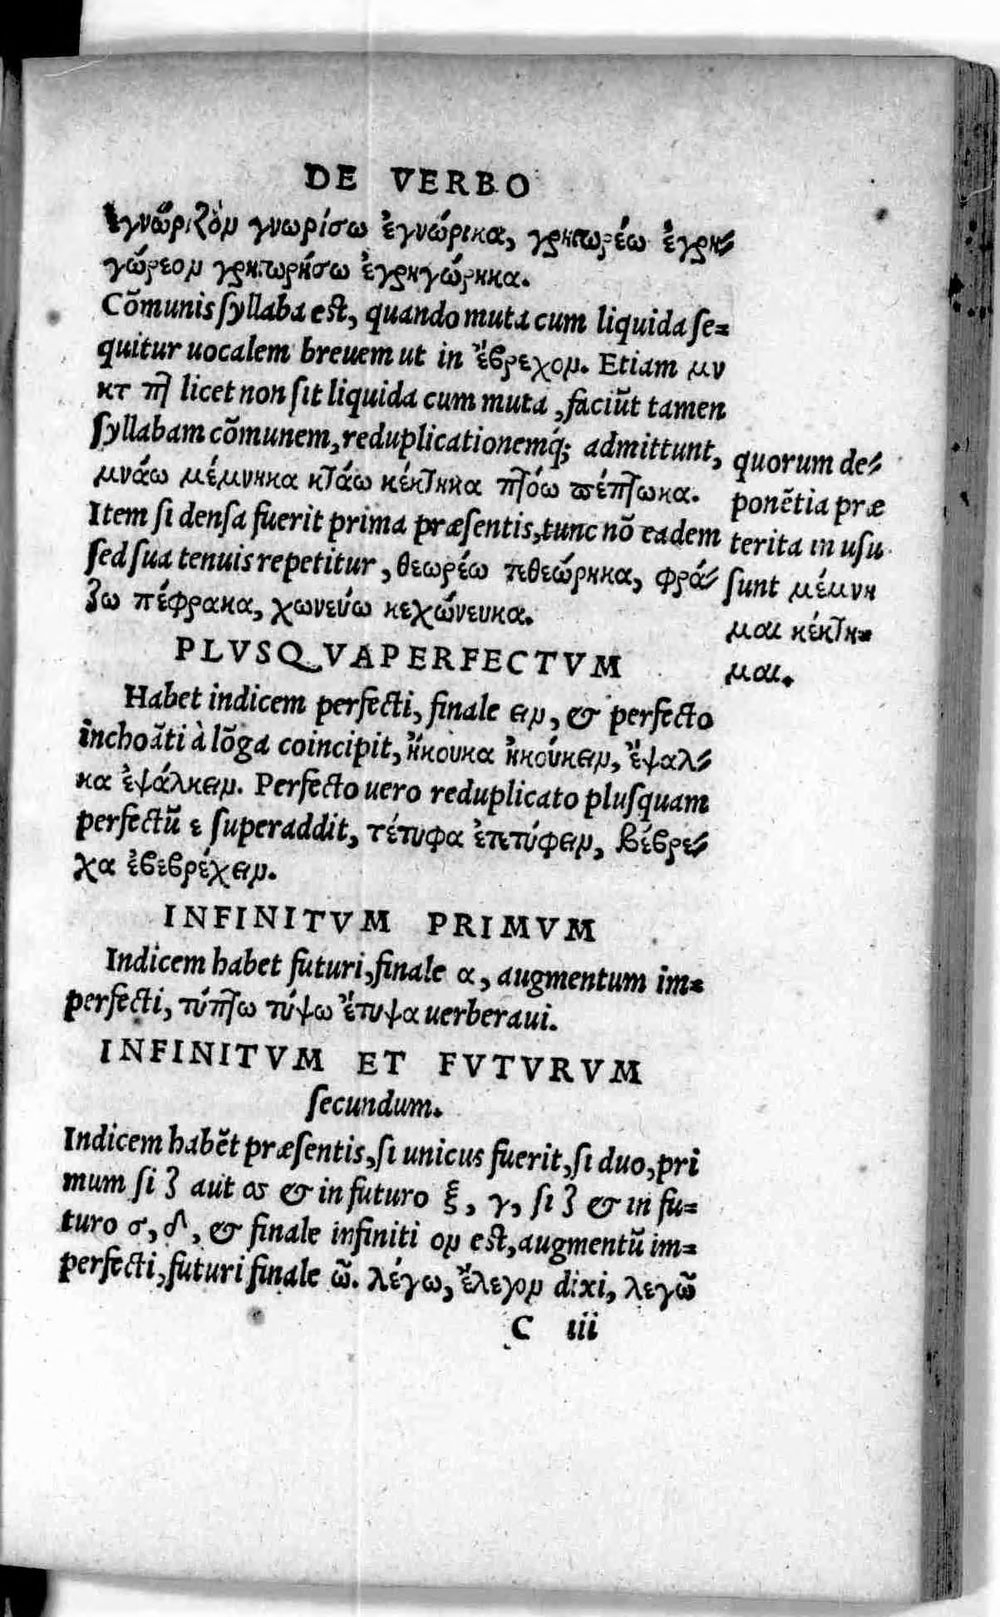 DE VERBO
ἐγνώριζον γνωρίσω ἐγνώρικα, γρηγορέω ἐγρη⸗
γώρεον γρηγορήσω ἐγρηγώρηκα.
Cōmunis syllaba est, quando muta cum liquida se⸗
quitur uocalem breuem ut in ἔβρεχον. Etiam μν
κτ πτ licet non sit liquida cum muta, faciūt tamen
syllabam cōmunem, reduplicationemq́; admittunt,
μνάω μέμνηκα κτάω κέκτηκα πτόω πέπτωκα.
Item si densa fuerit prima præsentis, tunc nō eadem
sed sua tenuis repetitur, θεωρέω τεθεώρηκα, φρά⸗
ζω πέφρακα, χωνεύω κεχώνευκα.
quorum de⸗
ponētia præ
terita in usu
sunt μέμνη
μαι κέκτη⸗
μαι.
PLVSQVAPERFECTVM
Habet indicem perfecti, finale ειν, & perfecto
inchoāti à lōga coincipit, ἤκουκα ἠκούκειν, ἔψαλ⸗
κα ἐψάλκειν. Perfecto uero reduplicato plusquam
perfectū ε superaddit, τέτυφα ἐτετύφειν, βέβρε⸗
χα ἐβεβρέχειν.
INFINITVM PRIMVM
Indicem habet futuri, finale α, augmentum im⸗
perfecti, τύπτω τύψω ἔτυψα uerberaui.
INFINITVM ET FVTVRVM
secundum.
Indicem habēt præsentis, si unicus fuerit, si duo, pri
mum si ζ aut σσ & in futuro ξ, γ, si ζ & in fu⸗
turo σ, δ, & finale infiniti ον est, augmentū im⸗
perfecti, futuri finale ῶ. λέγω, ἔλεγον dixi, λεγῶ
C iii